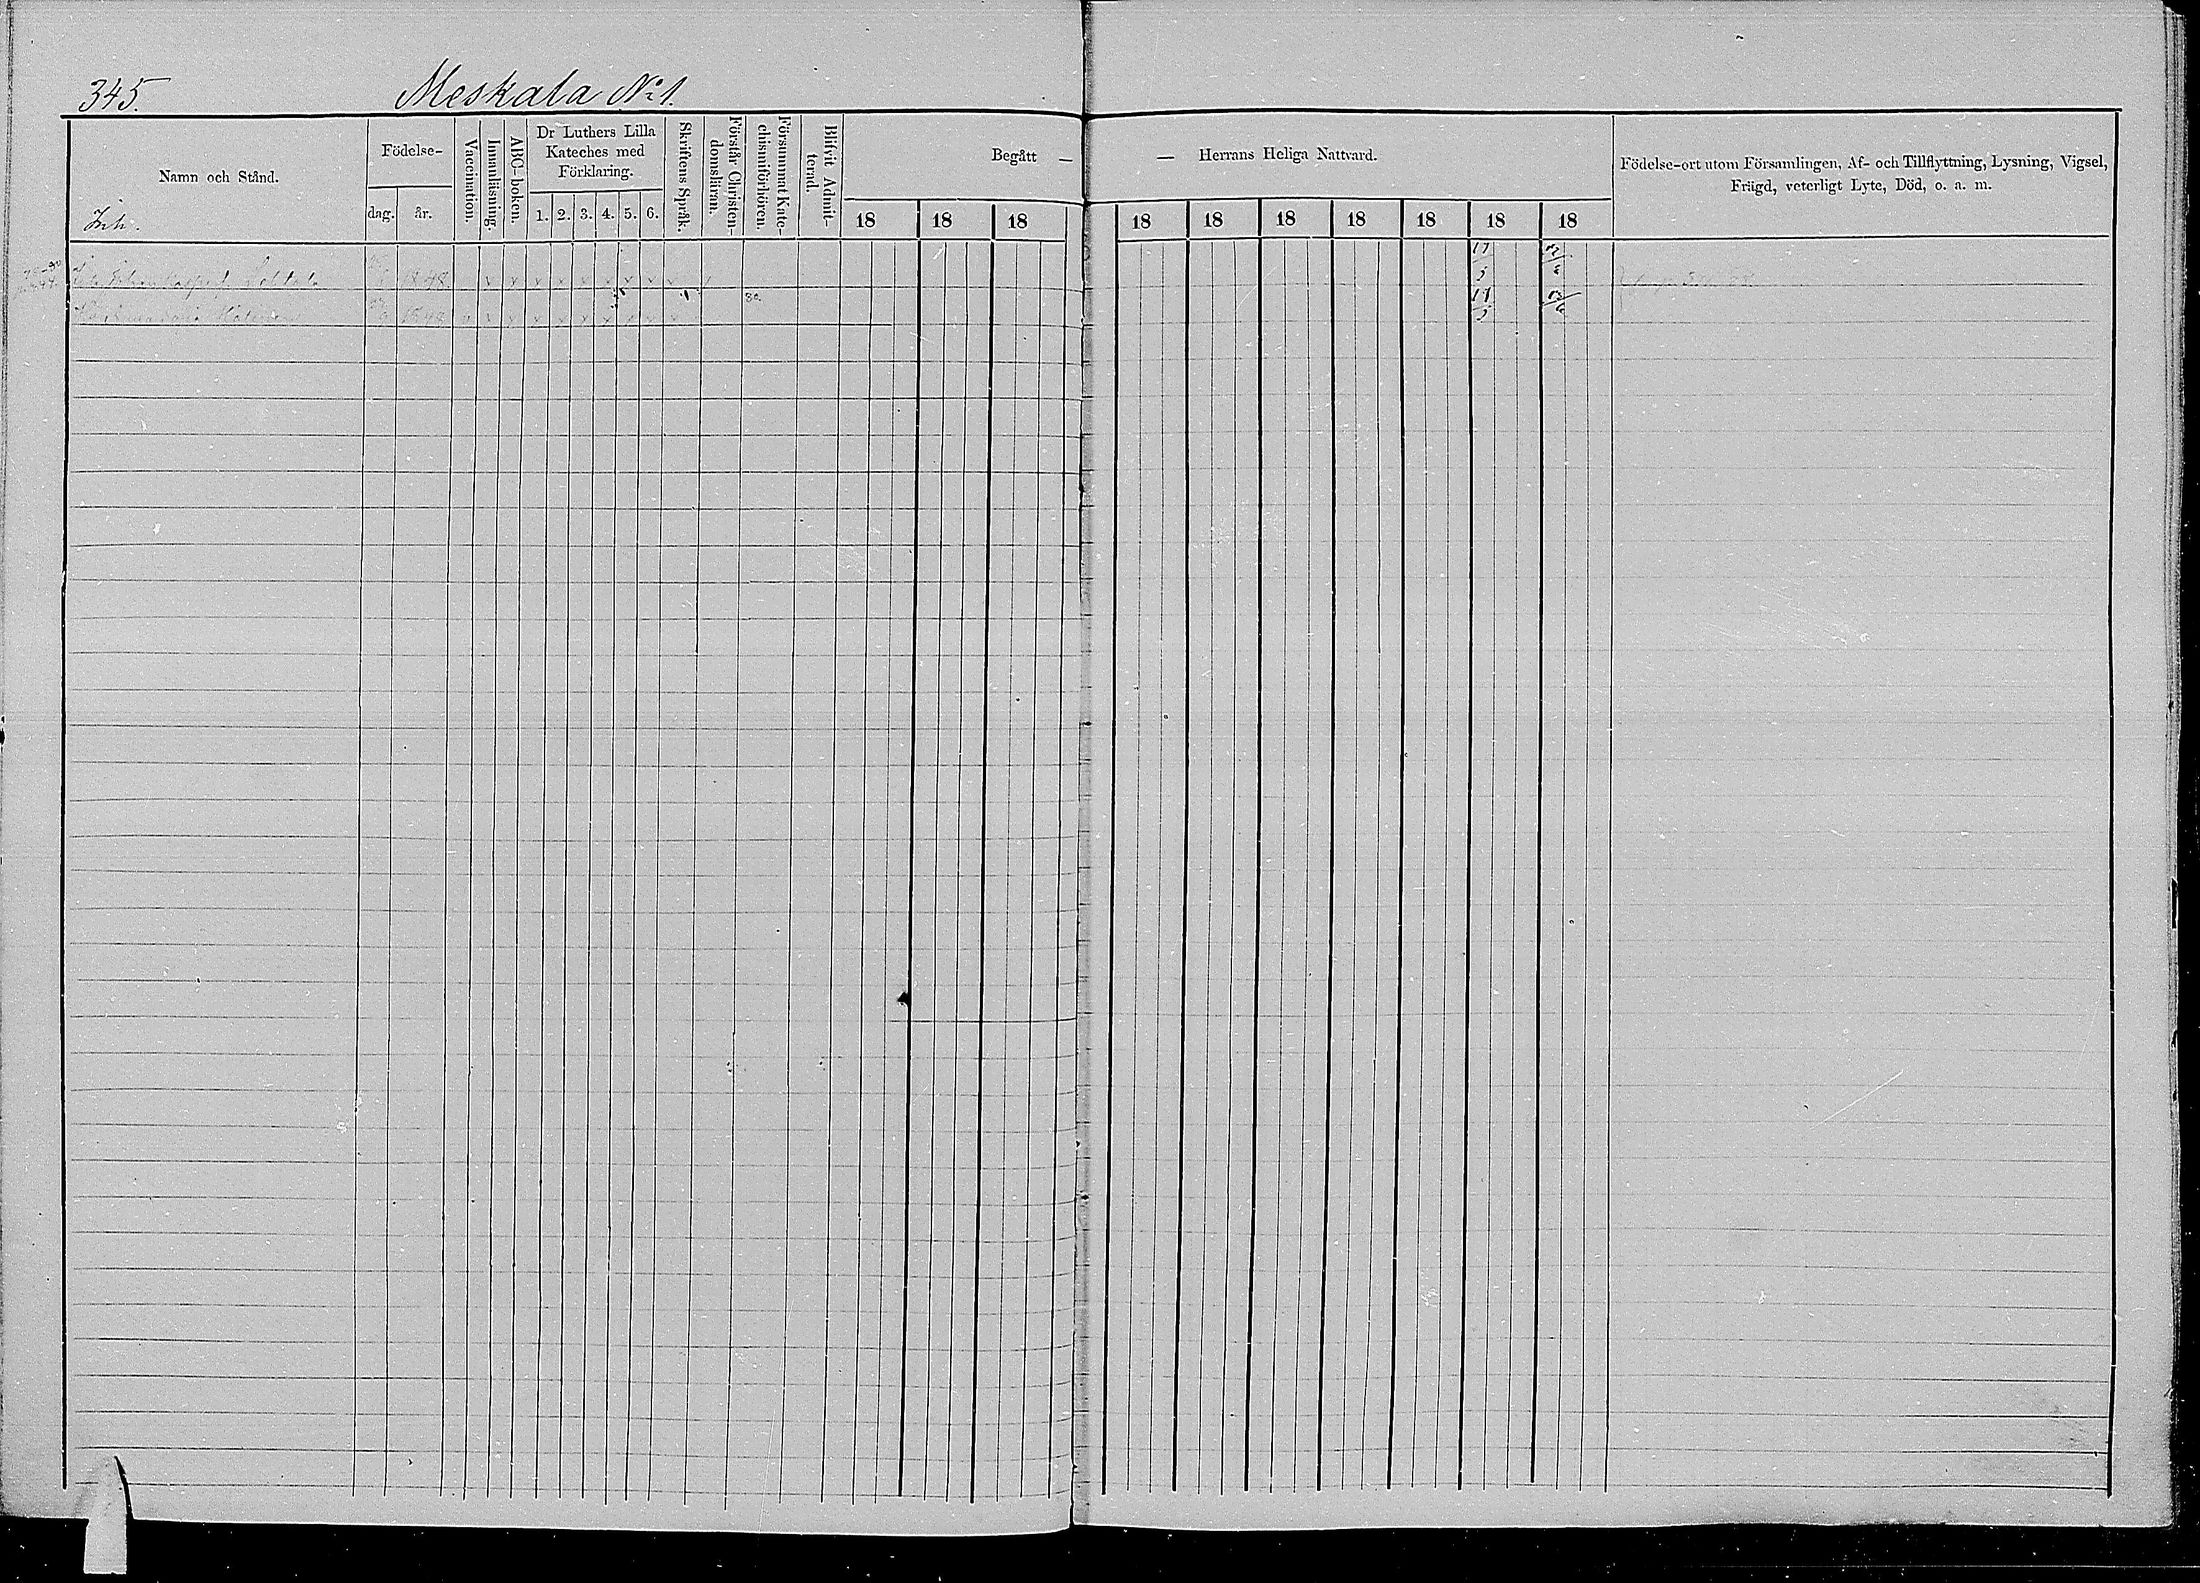 345. Meskala No 1.
Namn och Stånd.
Inh.
Födelse-
dag. år.
Vaccination.
Innanläsning.
ABC-boken.
Dr Luthers Lilla
Kateches med
Förklaring.
1. 2. 3. 4. 5. 6.
Skriftens Språk.
Förstår Christen-
domsläran.
Försummat Kate-
chismiförhören.
Blifvit Admit-
terad.
Begått —
— Herrans Heliga Nattvard.
18 18 18 18 18 18 18 18 18 18
Födelse-ort utom Församlingen, Af- och Tillflyttning, Lysning, Vigsel,
Frägd, veterligt Lyte, Död, o. a. m.
Johan 1848. x x x x x x x x
1848 x x x x x x x x